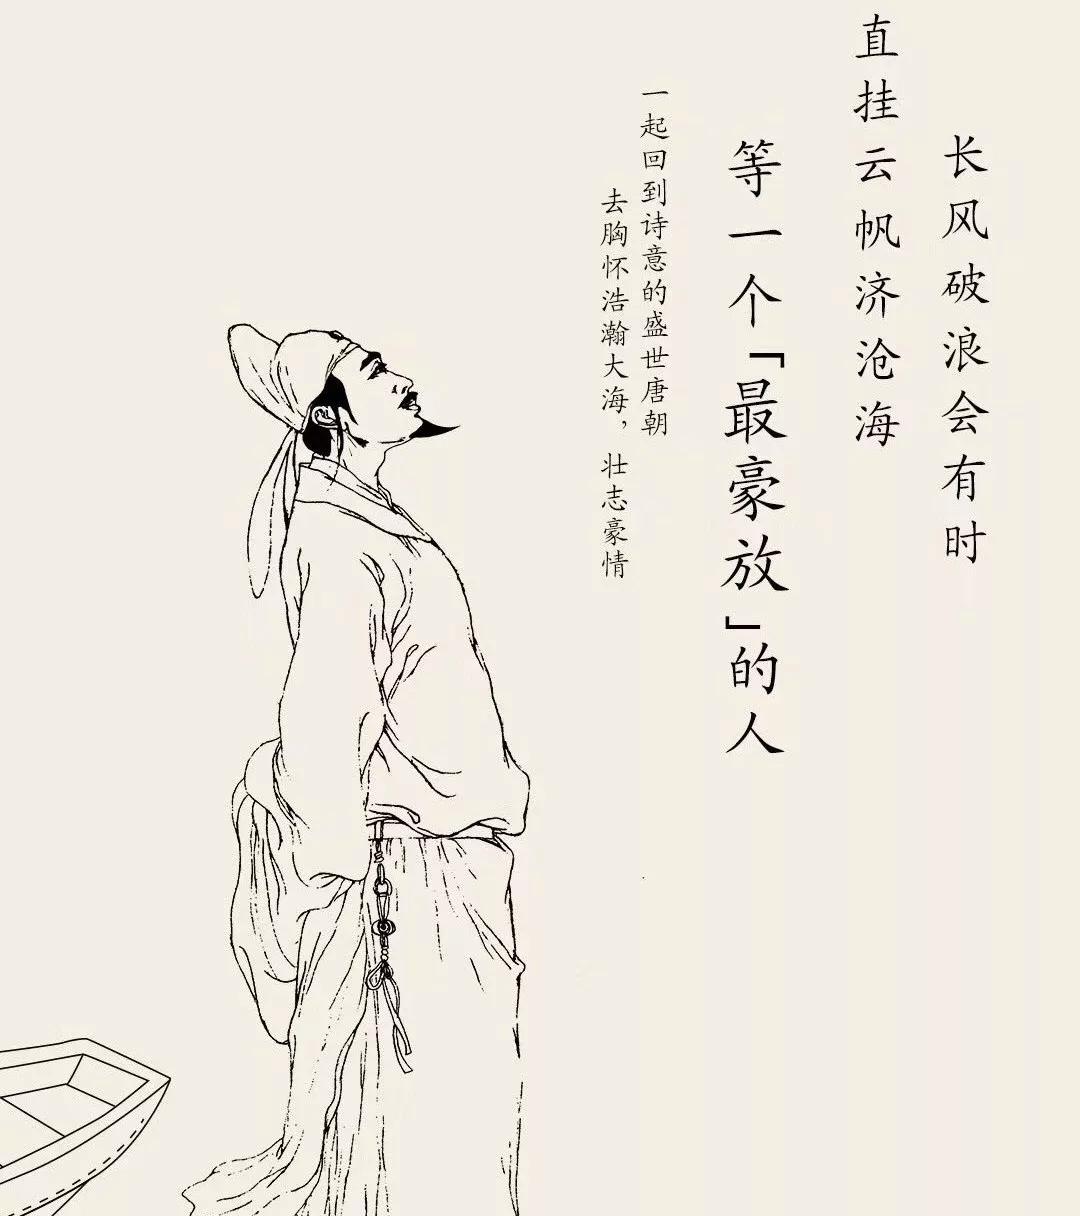 长风破浪会有时
直挂云帆济沧海
等一个「最豪放」的人
一起回到诗意的盛世唐朝
去胸怀浩瀚大海，壮志豪情